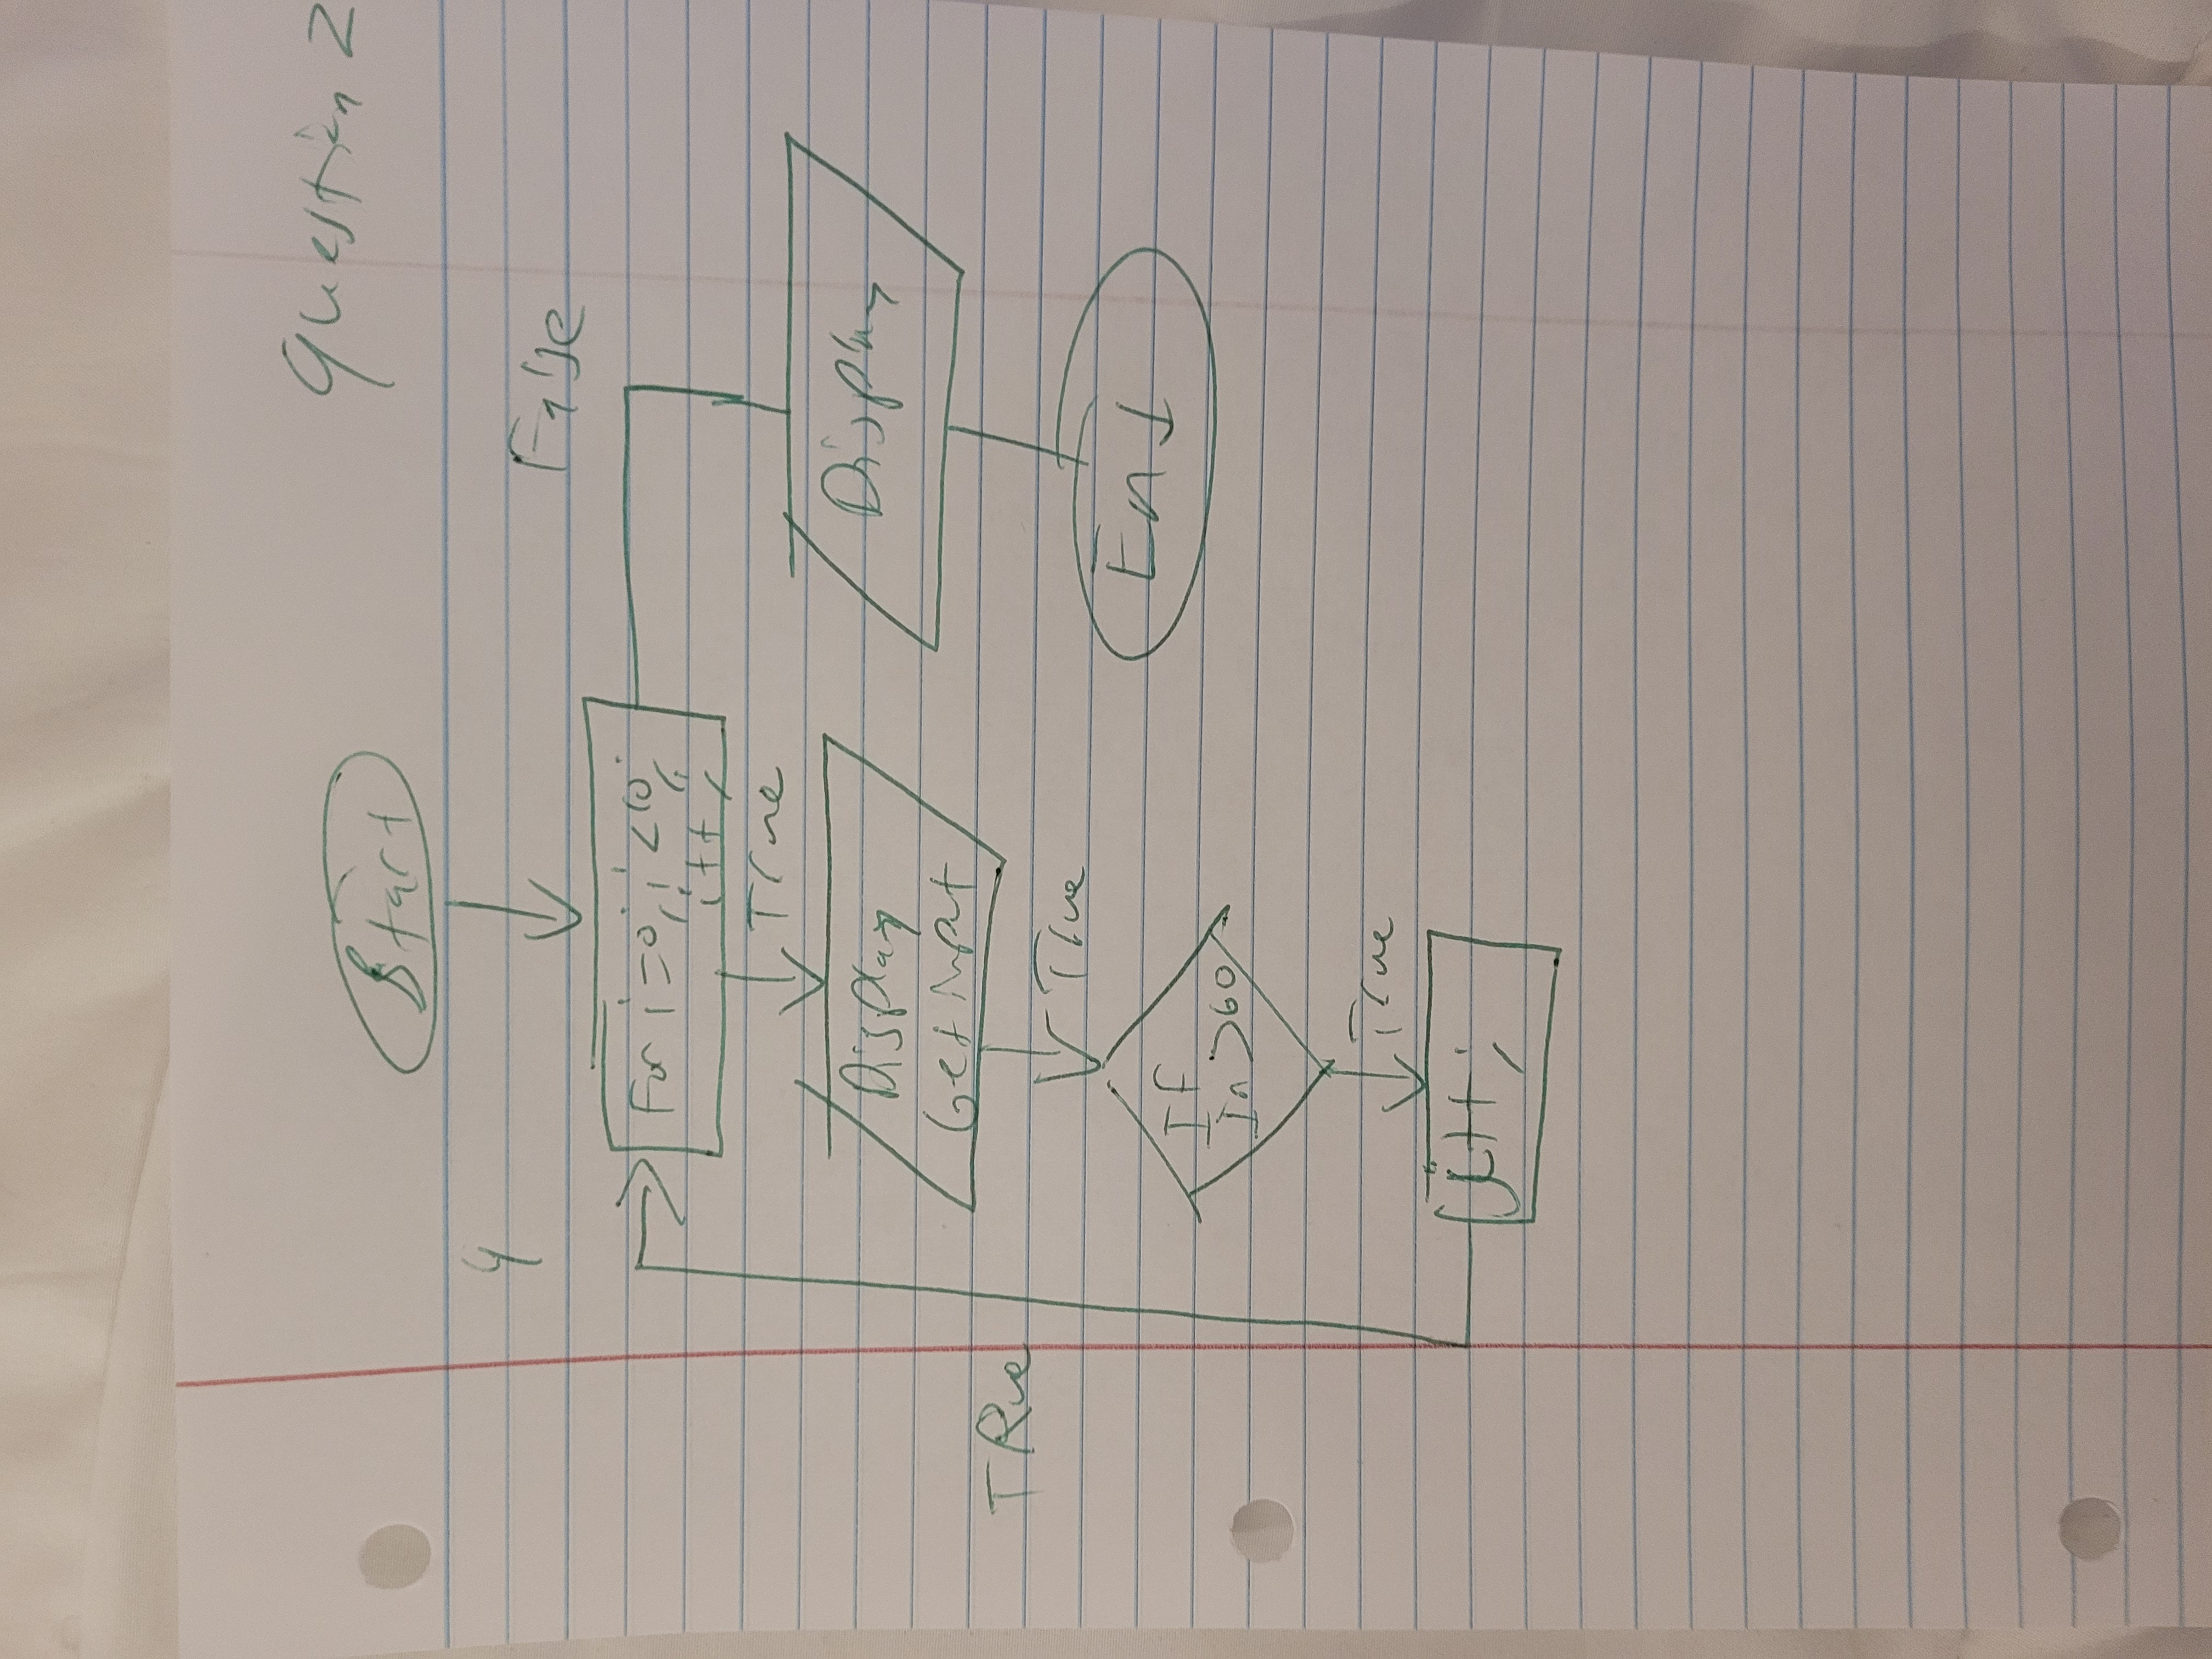 Question 2
Start
y
False
For i=0; i<10;
i++;
True
Display
Get input
Display
TRue
True
End
If
In >60
True